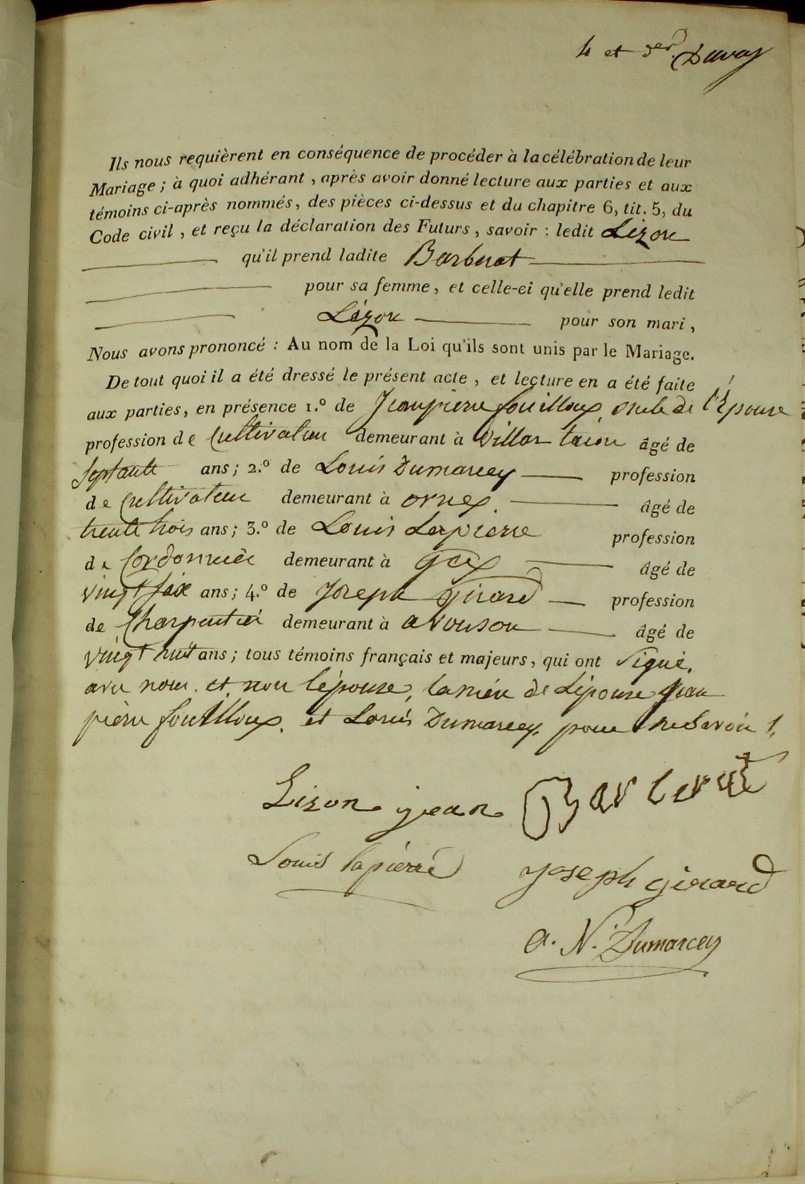 4 et der. Davay
Ils nous requièrent en conséquence de procéder à la célébration de leur
Mariage ; à quoi adhérant , après avoir donné lecture aux parties et aux
témoins ci-après nommés, des pièces ci-dessus et du chapitre 6, tit. 5, du
Code civil , et reçu la déclaration des Futurs , savoir : ledit Lizon
qu'il prend ladite Barberat
pour sa femme, et celle-ci qu'elle prend ledit
Lizon pour son mari ,
Nous avons prononcé : Au nom de la Loi qu'ils sont unis par le Mariage.
De tout quoi il a été dressé le présent acte , et lecture en a été faite
aux parties, en présence 1.º de Jean pierre fouilloux oncle de l'Épouse
profession de Cultivateur demeurant à Villar âgé de
Septante ans ; 2.º de Louis Dumarcey profession
de Cultivateur demeurant à ornex. âgé de
trente trois ans ; 3.º de Louis Lapierre profession
de Cordonnier demeurant à gex âgé de
vingt six ans ; 4.º de Joseph Girard profession
de Charpentier demeurant à avouson âgé de
vingt huit ans ; tous témoins français et majeurs, qui ont Signé,
avec nous. et non l'épouse, la mère de L'épouse Jean
pierre fouilloux. et Louis Dumarcey pour ne Savoir /.
Lizon jean Barberat
Louis lapierre
Joseph girard
a. N. Dumarcey